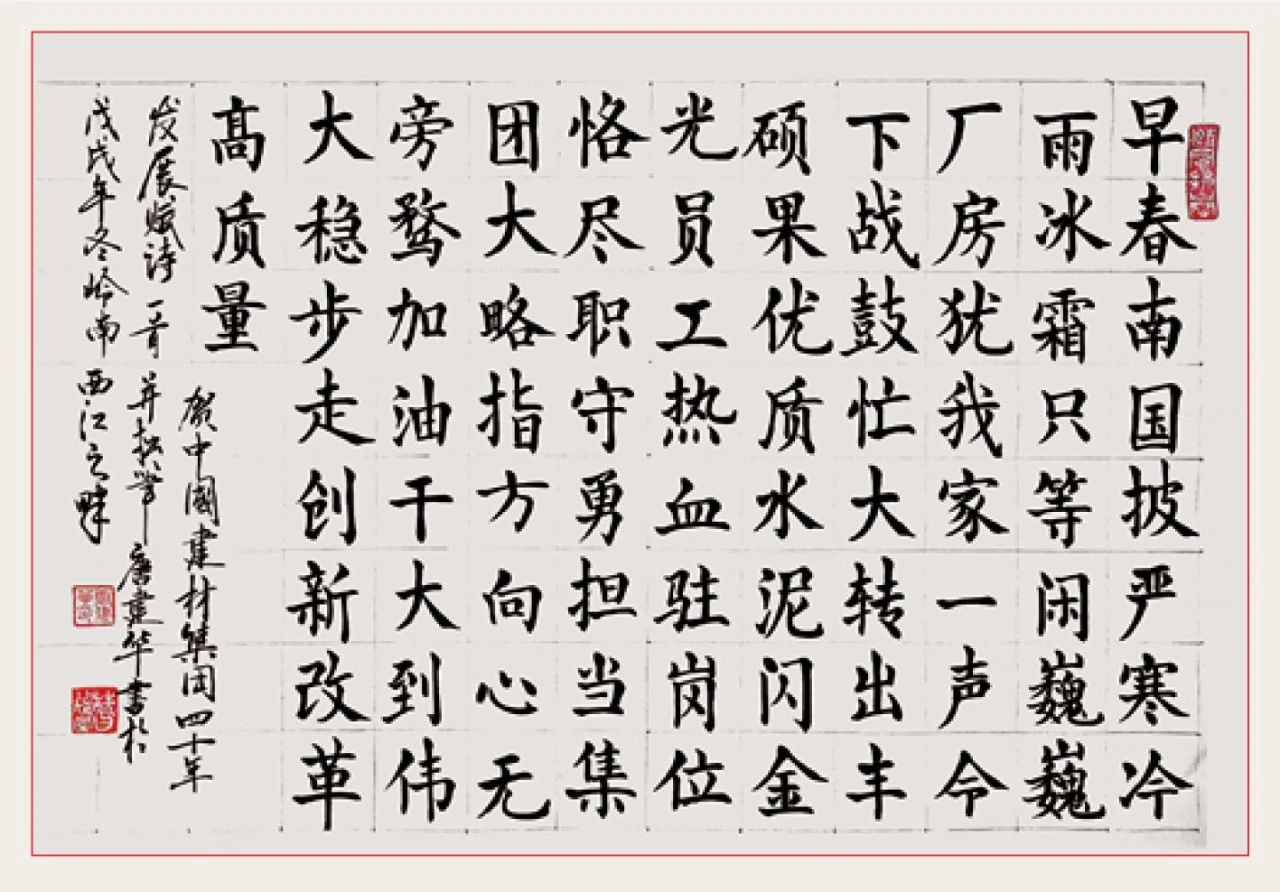 早春南国披严寒冷
雨冰霜只等闲巍巍
厂房犹我家一声令
下战鼓忙大转出丰
硕果优质水泥闪金
光员工热血驻岗位
恪尽职守勇担当集
团大略指方向心无
旁鹜加油干大到伟
大稳步走创新改革
高质量
贺中國建材集团四十年
发展赋诗一首并执笔唐建华書於
戊戌年冬岭南西江之畔